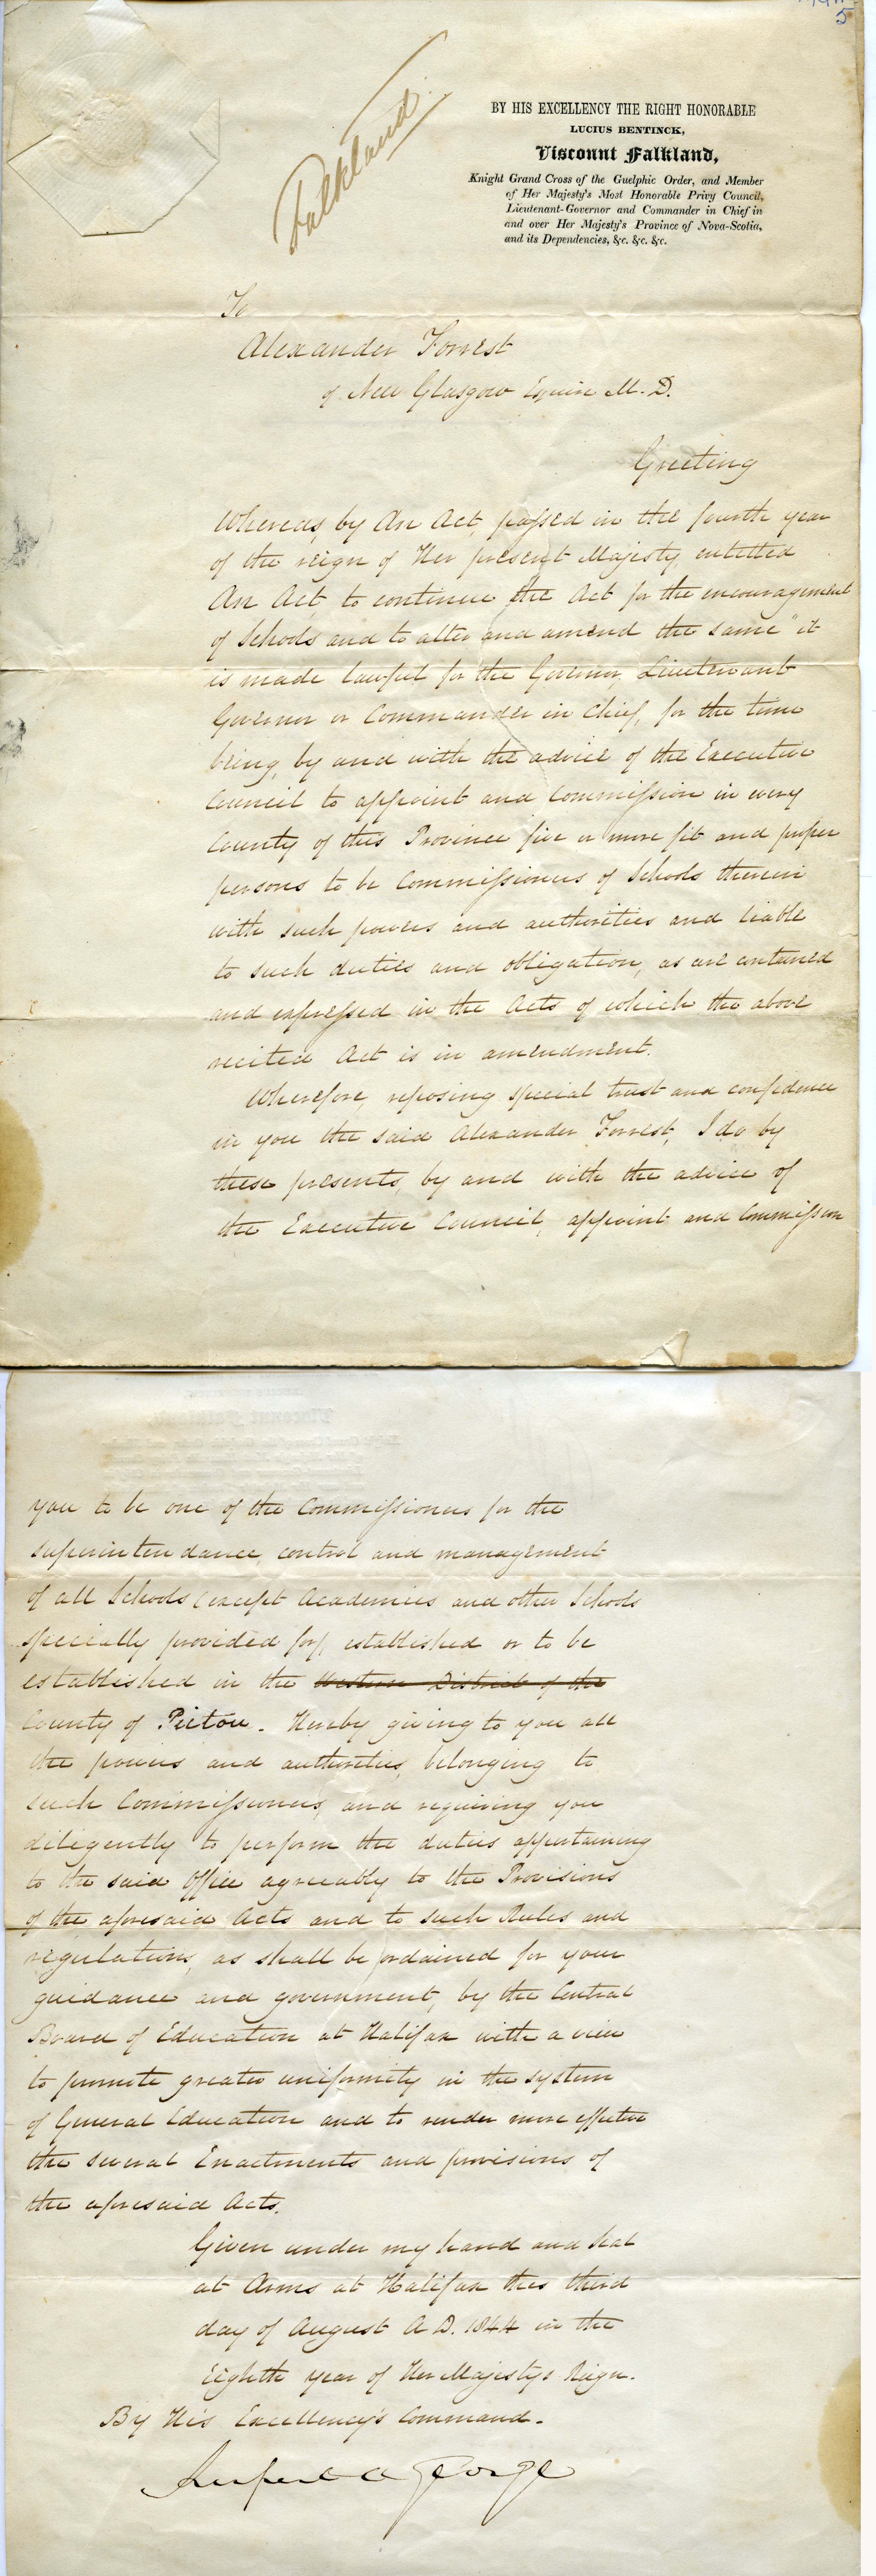 5
Falkland
BY HIS EXCELLENCY THE RIGHT HONORABLE
LUCIUS BENTINCK,
Viscount Falkland,
Knight Grand Cross of the Guelphic Order, and Member
of Her Majesty's Most Honorable Privy Council,
Lieutenant-Governor and Commander in Chief in
and over Her Majesty's Province of Nova-Scotia,
and its Dependencies, &c. &c. &c.
To
Alexander Forrest
of New Glasgow Esquire M. D.
Greeting
Whereas, by An Act, passed in the fourth year
of the reign of Her present Majesty entitled
An Act to continue the Act for the encouragement
of Schools and to alter and amend the same" it
is made lawful for the Governor, Lieutenant
Governor or Commander in Chief, for the time
being, by and with the advice of the Executive
Council to appoint and Commission in every
County of this Province five or more fit and proper
persons to be Commissioners of Schools therein
with such powers and authorities and liable
to such duties and obligation, as are contained
and expressed in the Acts of which the above
recited Act is in amendment.
Wherefore, reposing special trust and confidence
in you the said Alexander Forrest, I do by
these presents, by and with the advice of
the Executive Council, appoint and Commission
you to be one of the Commissioners for the
superintendance, control and management
of all Schools (except Academies and other Schools
specially provided for), established or to be
established in the Western District of the
County of Pictou. Hereby giving to you all
the powers and authorities, belonging to
such Commissioners, and requiring you
diligently to perform the duties appertaining
to the said Office agreeably to the Provisions
of the aforesaid Acts and to such Rules and
regulations, as shall be ordained for your
guidance and government, by the Central
Board of Education at Halifax with a view
to promote greater uniformity in the system
of General Education and to render more effective
the several Enactments and provisions of
the aforesaid Acts.
Given under my hand and Seal
at Arms at Halifax this third
day of August A.D. 1844 in the
Eighth year of Her Majestys Reign.
By His Excellency's Command.
George